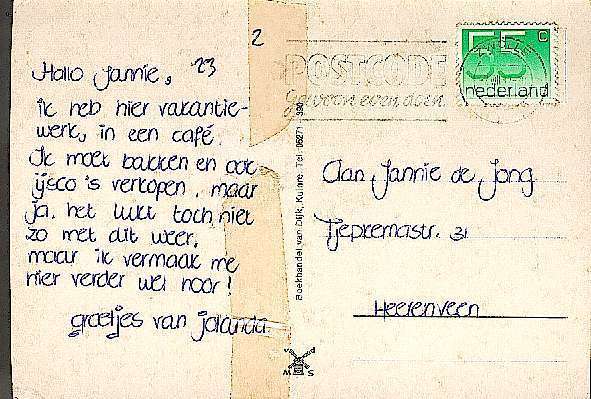 23
2
Hallo Jannie,
ik heb hier vakantie-
werk, in een café.
Ik moet bakken en ook
ijsco's verkopen, maar
ja, het lukt toch niet
zo met dit weer,
maar ik vermaak me
hier verder wel hoor!
groetjes van jolanda.
Boekhandel van Dijk, Kuinre, Tel. 05271 - 390
POSTCODE
gewoon even doen
55c
nederland
Aan Jannie de Jong
Tjepkemastr. 31
Heerenveen
M S